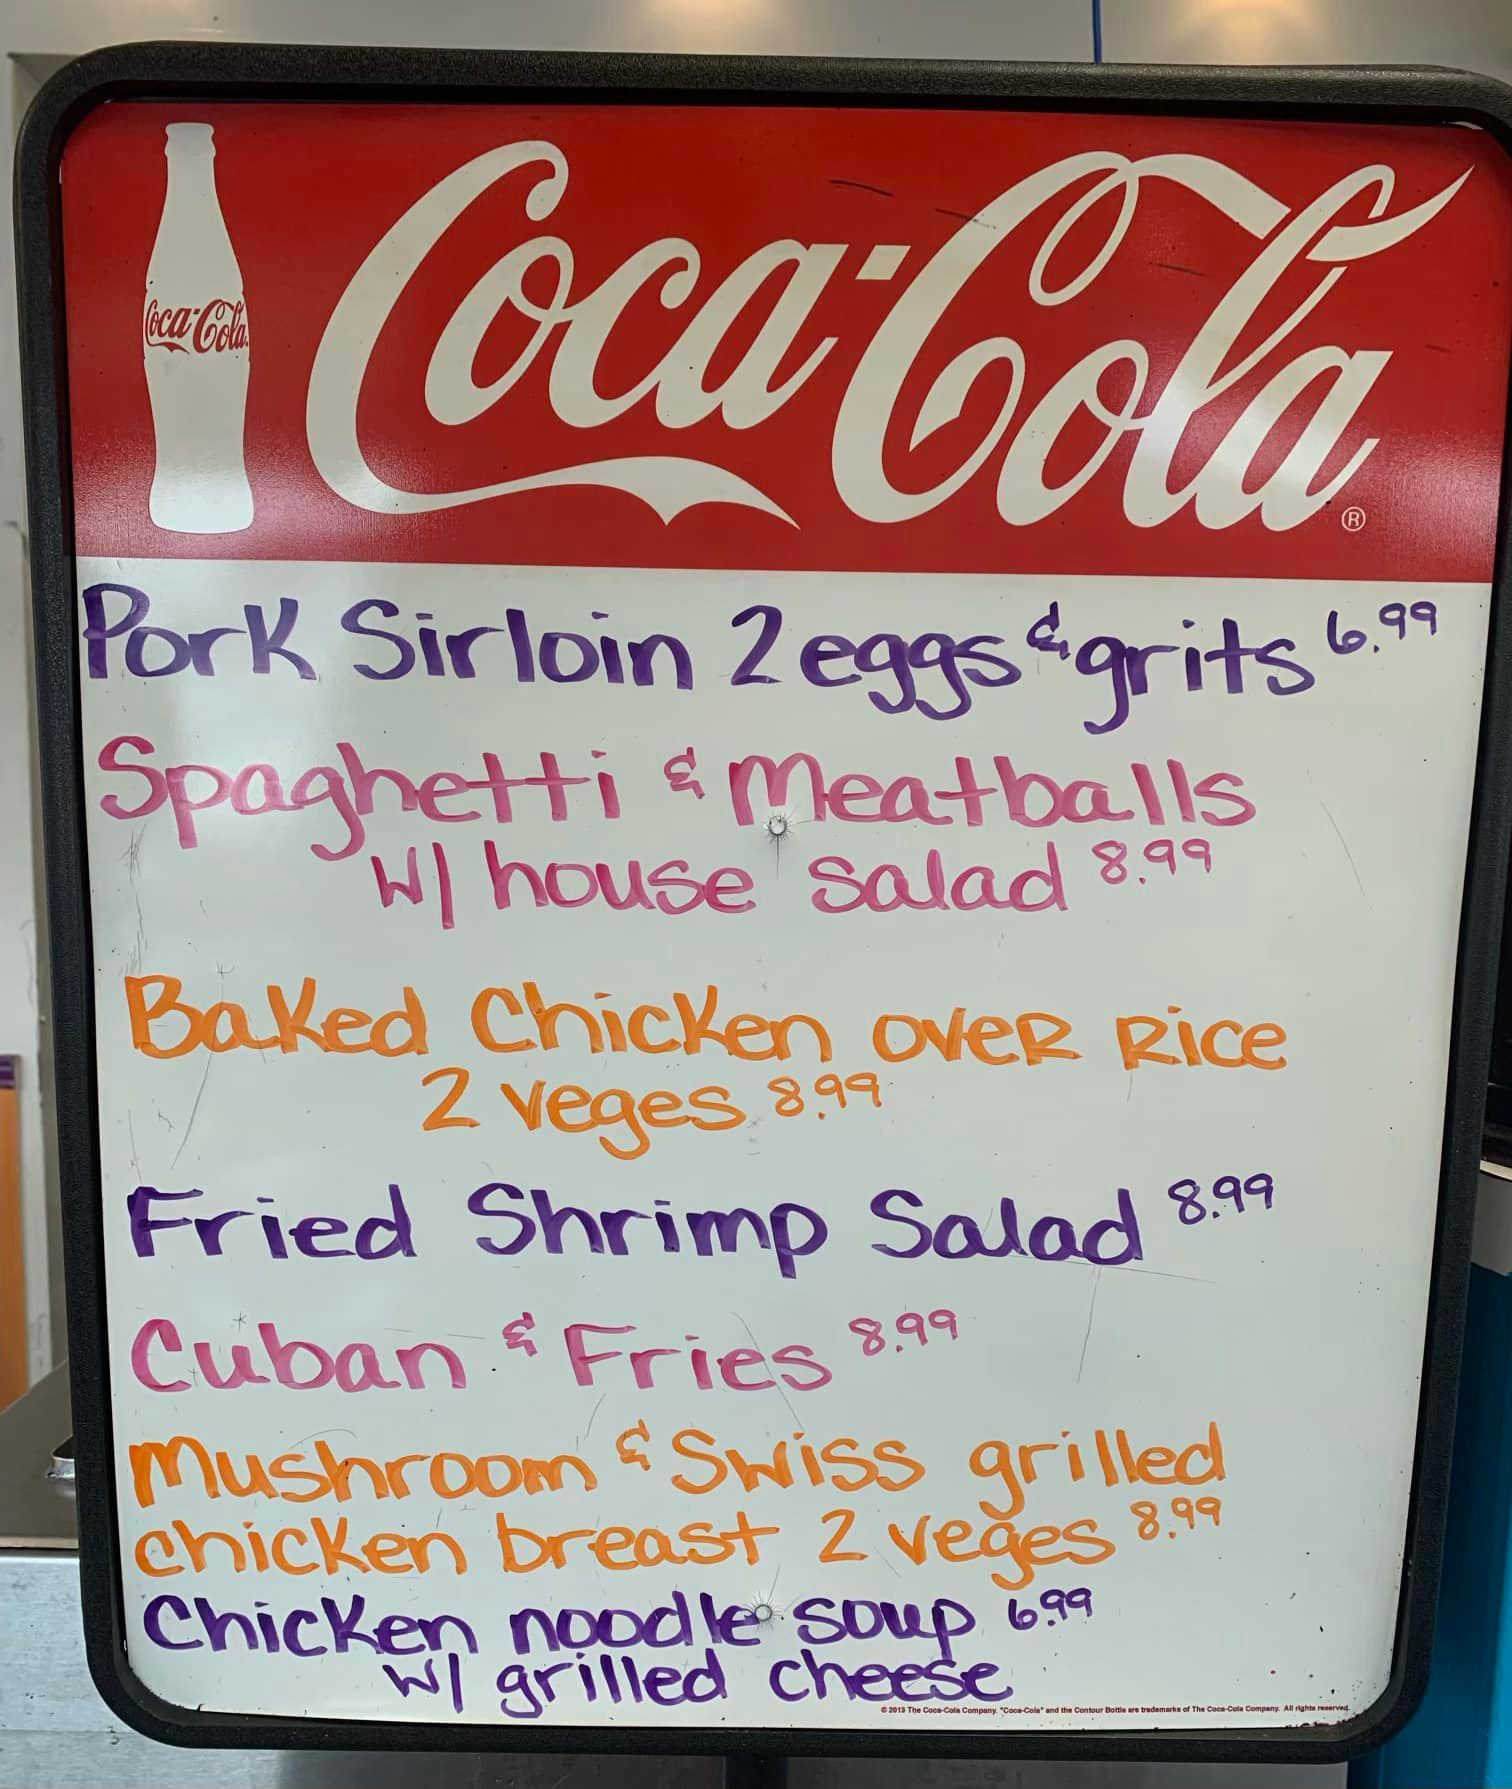 Coca-Cola
Coca-Cola ®
Pork Sirloin 2 eggs & grits 6.99
Spaghetti & Meatballs
w/ house salad 8.99
Baked Chicken over Rice
2 veges 8.99
Fried Shrimp Salad 8.99
Cuban & Fries 8.99
Mushroom & Swiss grilled
chicken breast 2 veges 8.99
Chicken noodle soup 6.99
w/ grilled cheese
© 2013 The Coca-Cola Company. "Coca-Cola" and the Contour Bottle are trademarks of The Coca-Cola Company. All rights reserved.